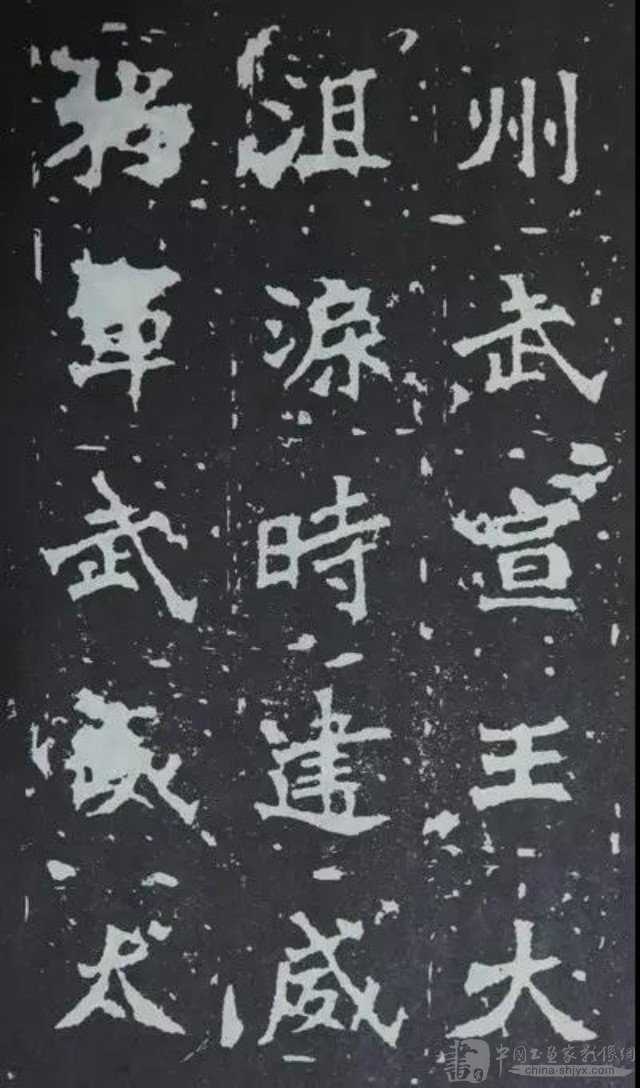 州武宣王大
沮渠時建威
將軍武威太
中国书画家影像網
china-shjyx.com